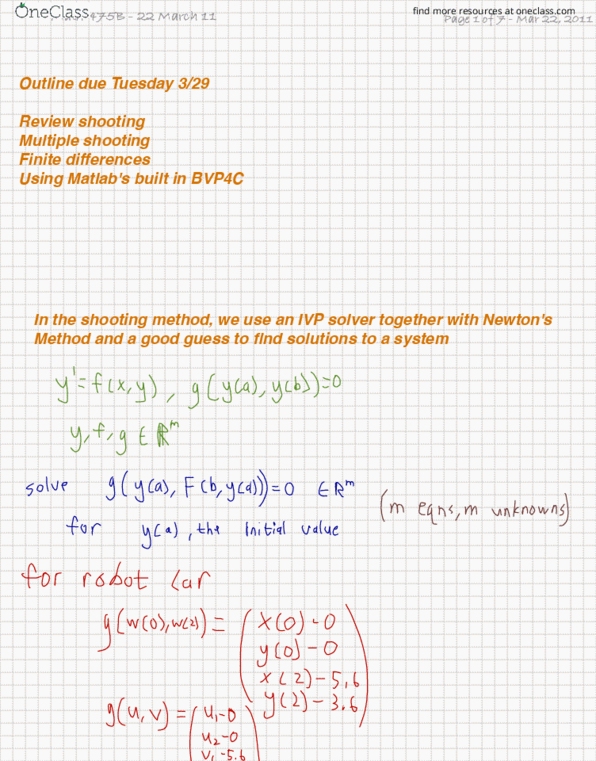 OneClass
find more resources at oneclass.com
475B - 22 March 11
Page 1 of 7 - Mar 22, 2011
Outline due Tuesday 3/29
Review shooting
Multiple shooting
Finite differences
Using Matlab's built in BVP4C
In the shooting method, we use an IVP solver together with Newton's
Method and a good guess to find solutions to a system
y' = f(x,y), g(y(a), y(b)) = 0
y, f, g ∈ ℝ^m
solve g(y(a), F(b, y(a))) = 0 ∈ ℝ^m
(m eqns, m unknowns)
for y(a), the initial value
for robot car
g(w(0), w(2)) = ( x(0) - 0
y(0) - 0
x(2) - 5.6
y(2) - 3.6 )
g(u, v) = ( u₁-0
u₂-0
v₁-5.6